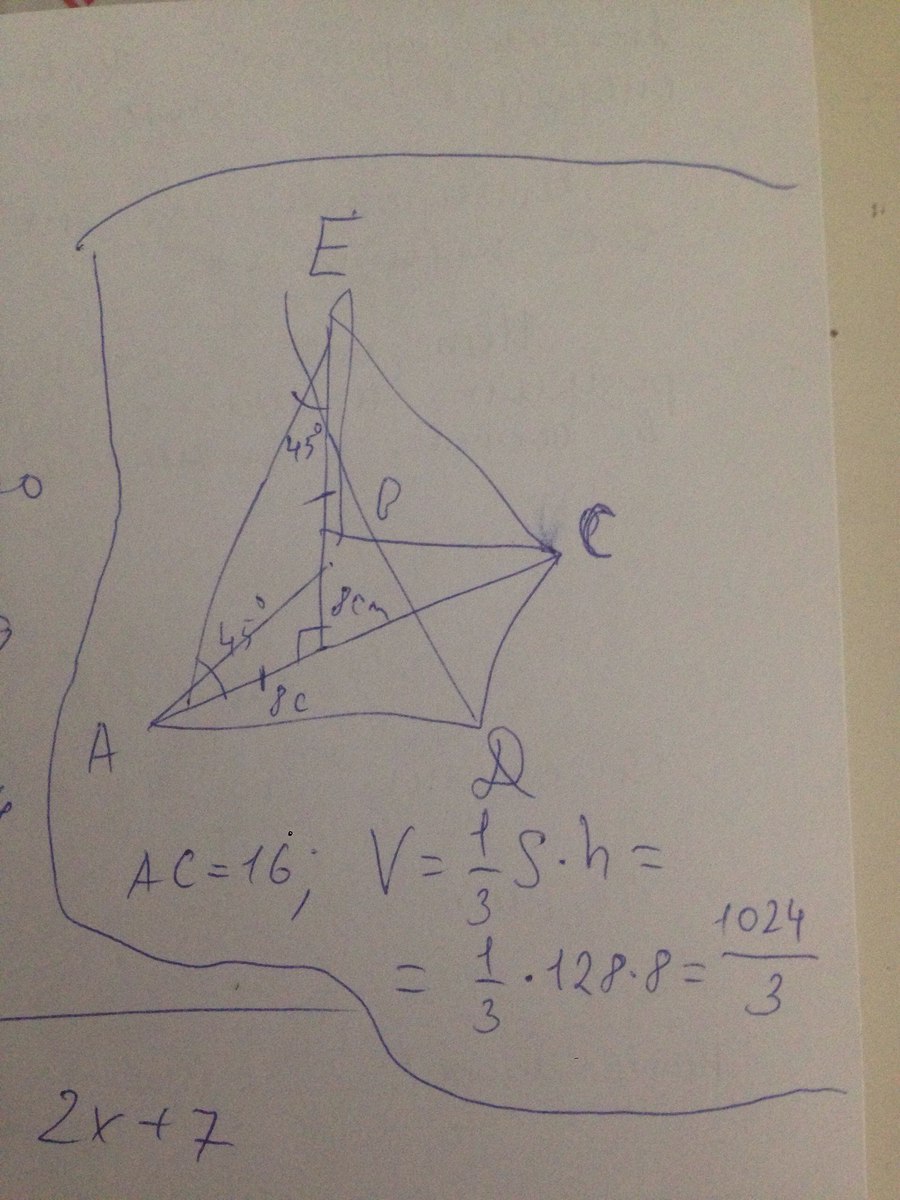 E
45°
B
C
45°
8cm
8c
A
D
AC=16; V = 1/3 S·h =
= 1/3 · 128 · 8 = 1024/3
2x+7